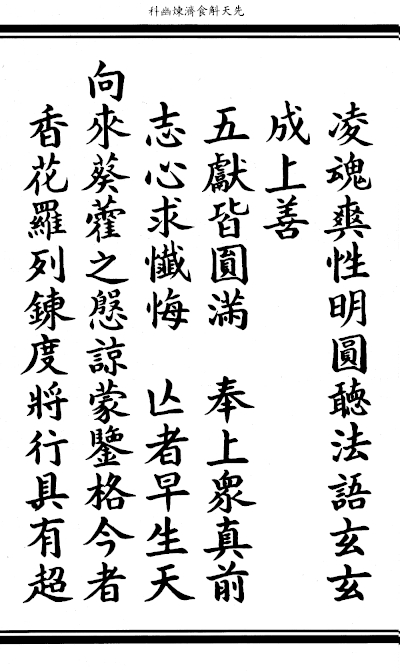 先天斛食濟煉幽科
凌魂爽性明圓聽法語玄玄
成上善
五獻皆圓滿　奉上眾真前
志心求懺悔　亾者早生天
向來葵藿之慇諒蒙鑒格今者
香花羅列鍊度將行具有超